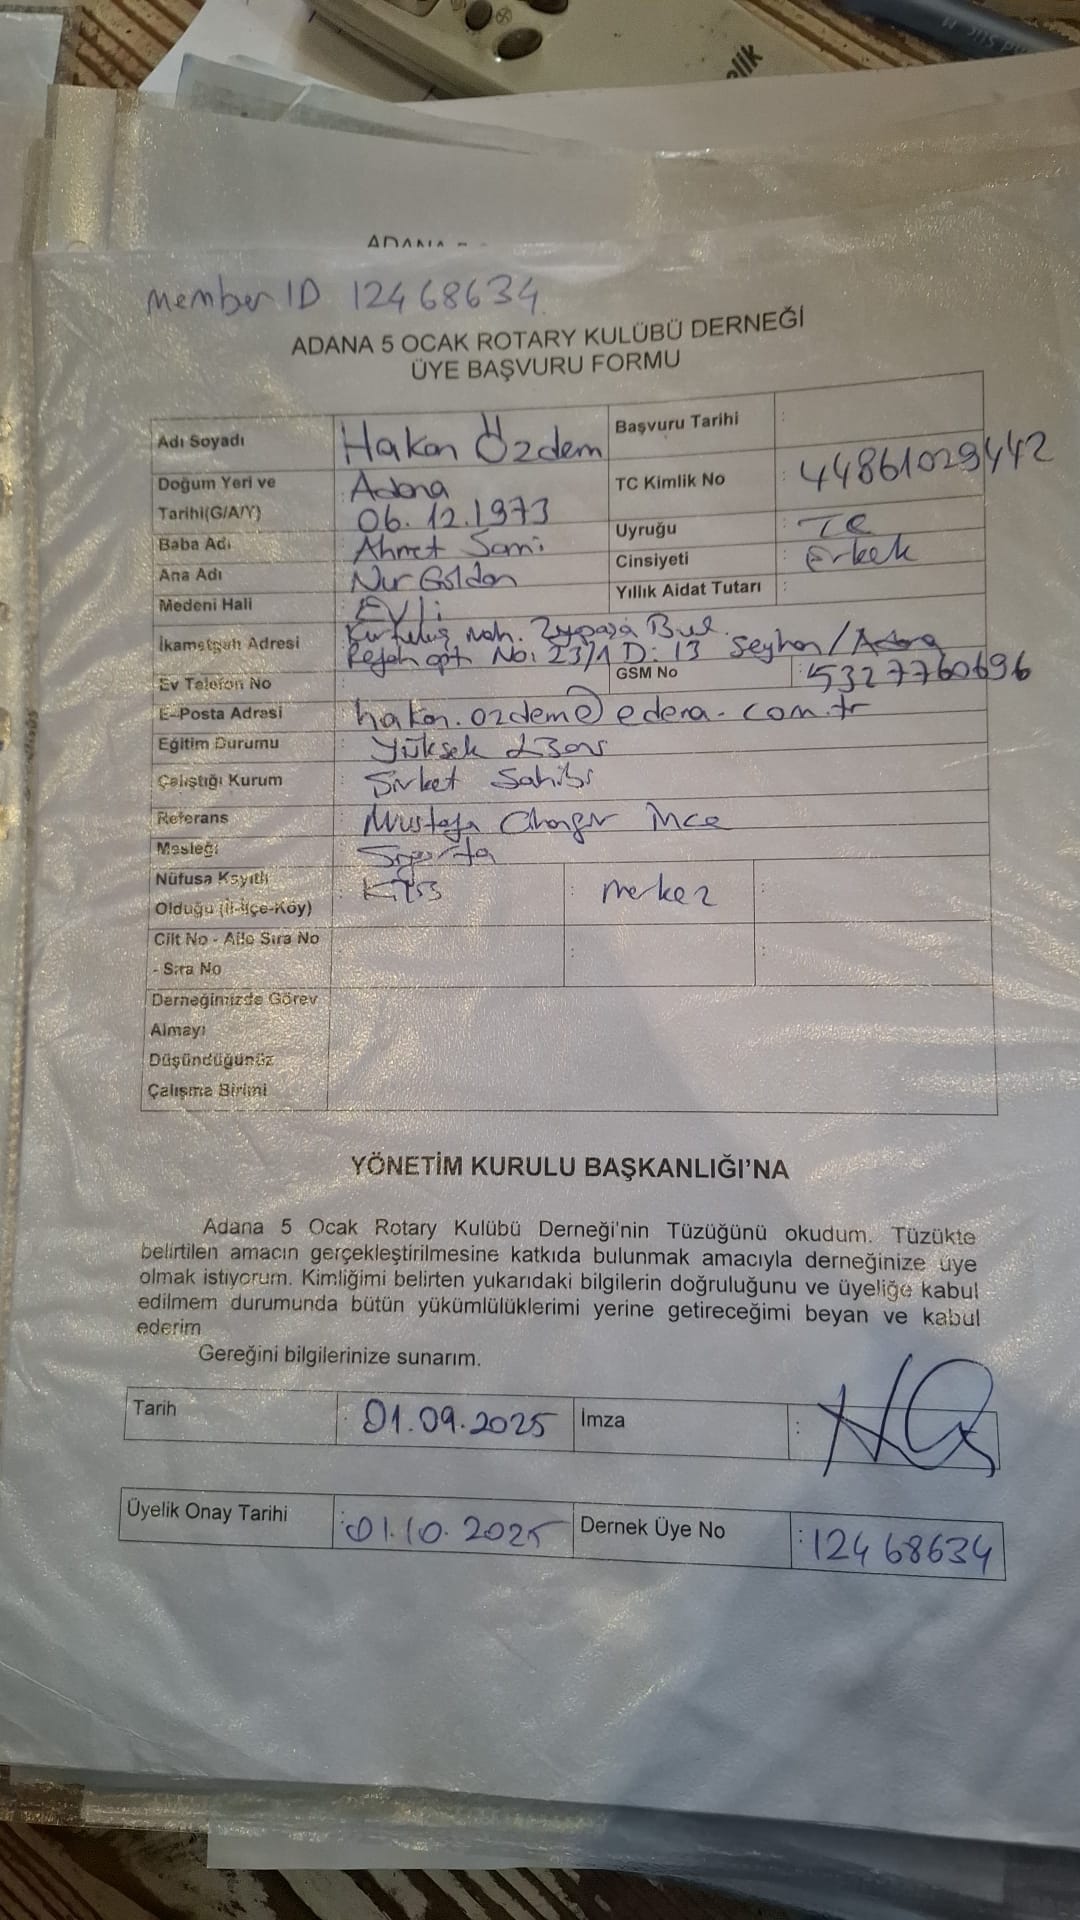 elik
ADANA 5
member ID 12468634
ADANA 5 OCAK ROTARY KULÜBÜ DERNEĞİ
ÜYE BAŞVURU FORMU
Adı Soyadı Hakan Özdem Başvuru Tarihi :
Doğum Yeri ve : Adana TC Kimlik No : 44861029442
Tarihi(G/A/Y) 06.12.1973 Uyruğu : TC
Baba Adı : Ahmet Sami Cinsiyeti : Erkek
Ana Adı : Nur Goldan Yıllık Aidat Tutarı :
Medeni Hali : Evli
İkametgah Adresi Kurtuluş Mah. Bul.
Refah apt. No: 23/1 D: 13 Seyhan/Adana
Ev Telefon No : GSM No : 5327760696
E-Posta Adresi : hakan.ozdem@edena.com.tr
Eğitim Durumu : Yüksek Lisans
Çalıştığı Kurum : Şirket Sahibi
Referans : Mustafa İnce
Mesleği : Sigorta
Nüfusa Kayıtlı : Kilis : merkez :
Olduğu (İl-İlçe-Köy)
Cilt No - Aile Sıra No : :
- Sıra No
Derneğimizde Görev
Almayı
Düşündüğünüz
Çalışma Birimi
YÖNETİM KURULU BAŞKANLIĞI'NA
Adana 5 Ocak Rotary Kulübü Derneği'nin Tüzüğünü okudum. Tüzükte
belirtilen amacın gerçekleştirilmesine katkıda bulunmak amacıyla derneğinize üye
olmak istiyorum. Kimliğimi belirten yukarıdaki bilgilerin doğruluğunu ve üyeliğe kabul
edilmem durumunda bütün yükümlülüklerimi yerine getireceğimi beyan ve kabul
ederim
Gereğini bilgilerinize sunarım.
Tarih : 01.09.2025 İmza :
Üyelik Onay Tarihi : 01.10.2025 Dernek Üye No : 12468634